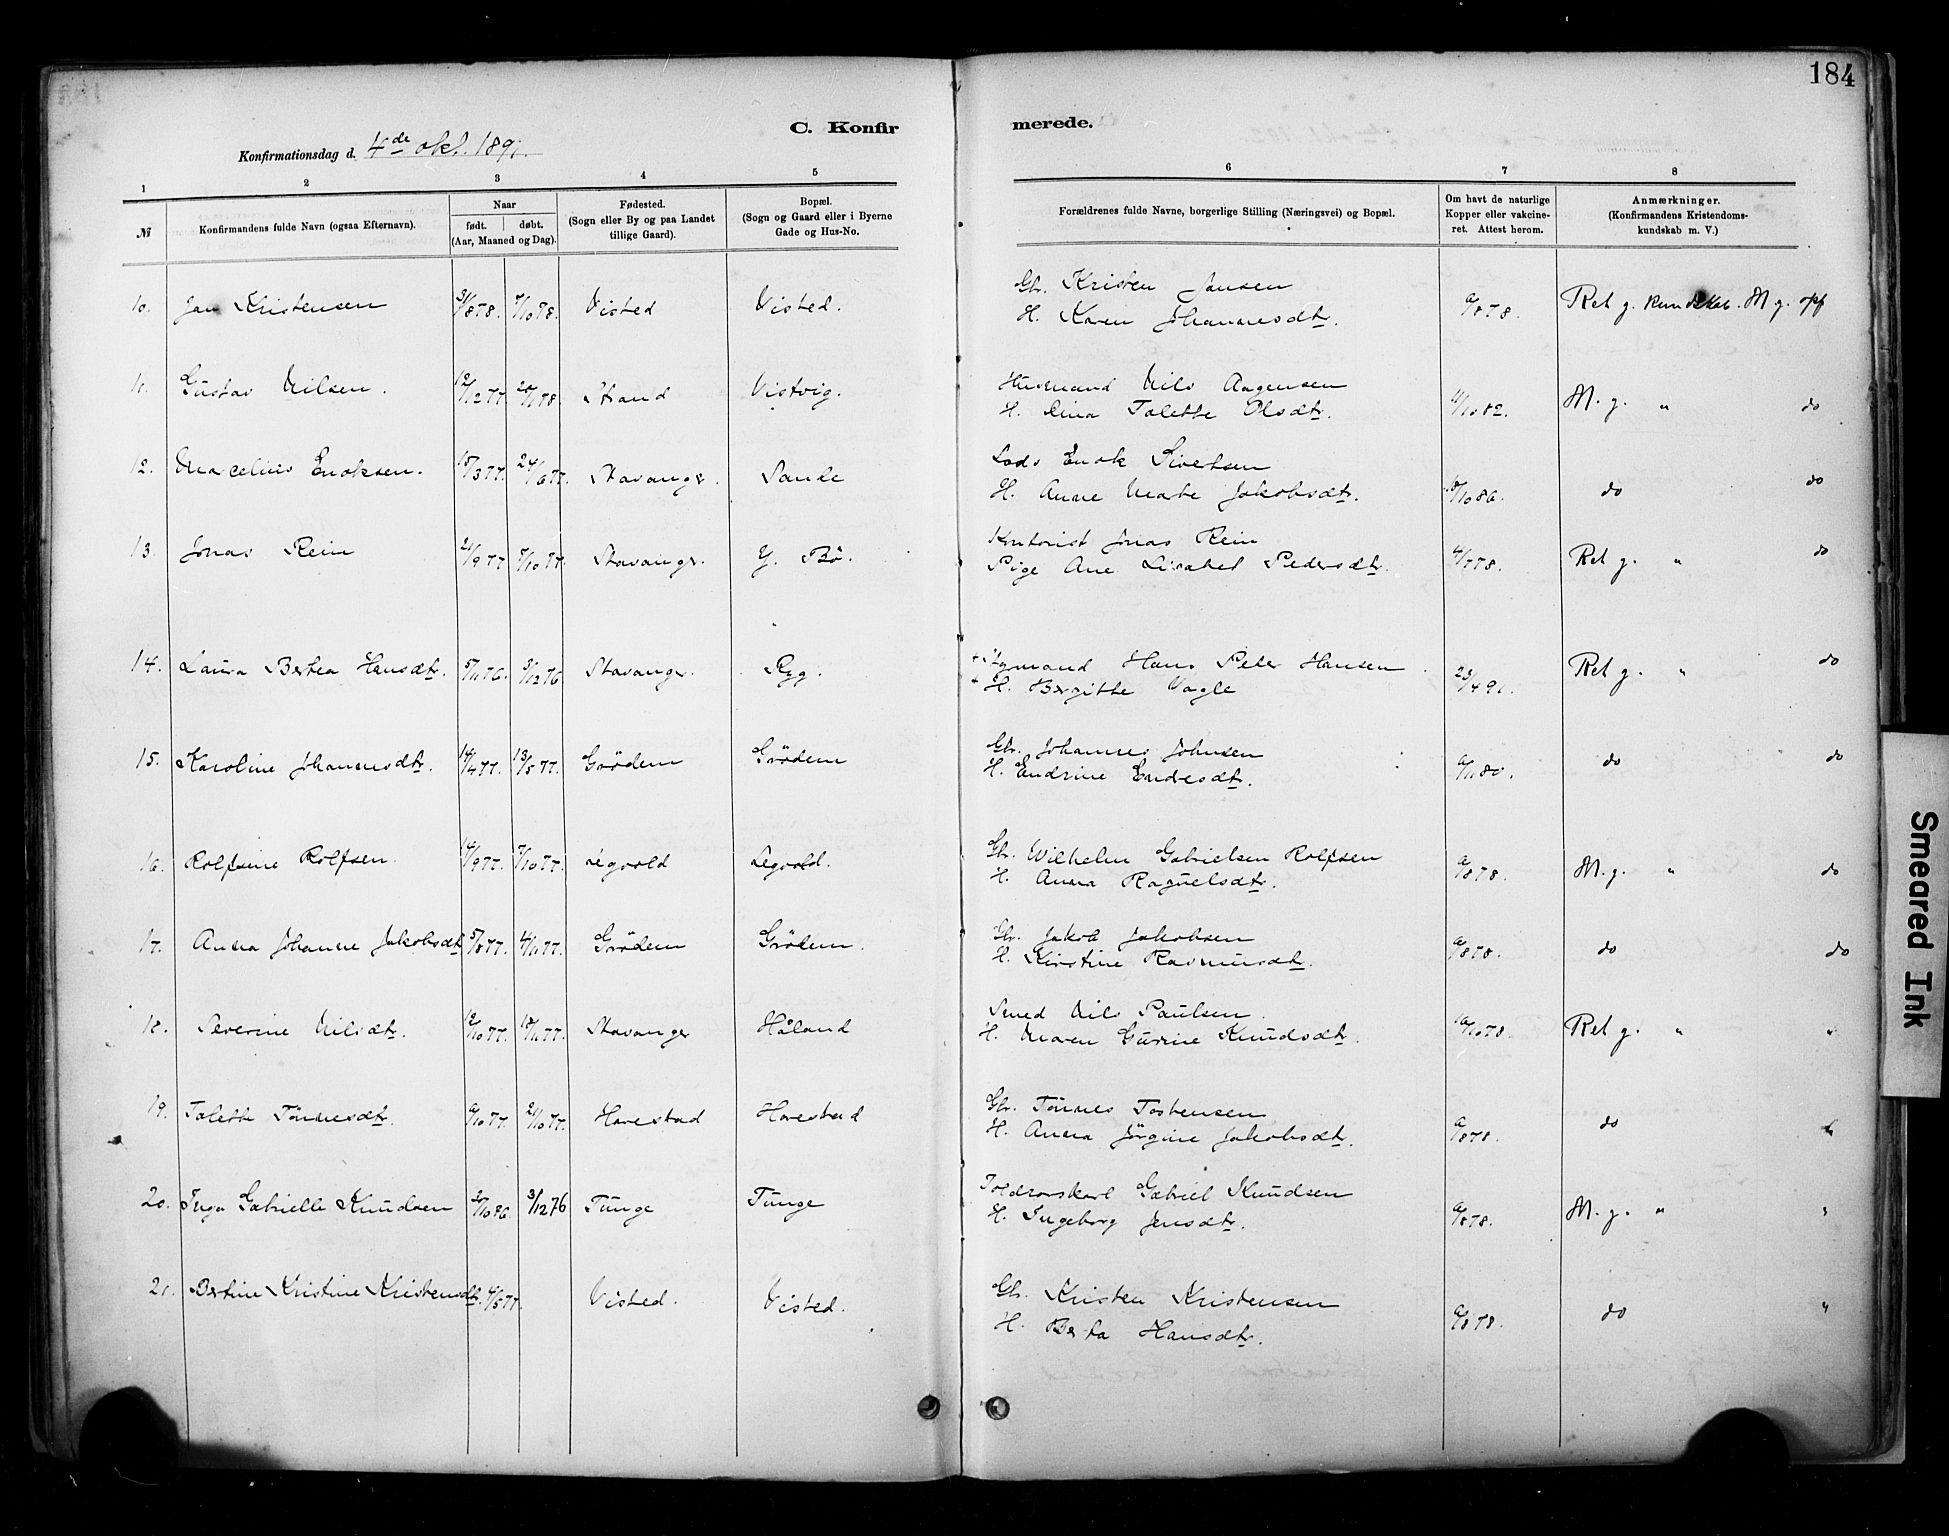 184
C. Konfirmerede.
Konfirmationsdag d. 4de okt. 1891.
1 2 3 4 5 6 7 8
№
Konfirmandens fulde Navn (ogsaa Efternavn).
Naar
født. døbt.
(Aar, Maaned og Dag).
Fødested.
(Sogn eller By og paa Landet
tillige Gaard).
Bopæl.
(Sogn og Gaard eller i Byerne
Gade og Hus-No.
Forældrenes fulde Navne, borgerlige Stilling (Næringsvei) og Bopæl.
Om havt de naturlige
Kopper eller vakcine-
ret. Attest herom.
Anmærkninger.
(Konfirmandens Kristendoms-
kundskab m. V.)
10. Jan Kristensen 3/878. 7/1078. Visted Visted.
Gbr. Kristen Jansen
H. Karen Johannesdtr. Ret g. kundskab. M g. opf
11. Gustav Nilsen. 12/1277. 20/178. Strand Vistvig.
Husmand Nils Aagensen
H. Dina Talette Olsdtr. 11/1082. M. g. " do
12. Marcelius Enoksen. 15/377. 24/677. Stavanger. Sande
Lods Enok Sivertsen
H. Anne Marte Jakobsdtr. 18/1086. do do
13. Jonas Rein 21/977 7/1077. Stavanger. Y. Bö.
Kontorist Jonas Rein
Pige Ane Lisabet Pedersdtr. 4/778. Ret g. " do
14. Laura Bertea Hansdtr. 5/1176. 3/1276 Stavanger. Ryg.
Hans Peter Hansen
H. Bergitte Vagle 23/491. Ret g. " do
15. Karoline Johannesdtr. 14/477. 13/577. Grödem Grödem
Gbr. Johannes Johnsen
H. Endrine Endresdtr. do do
16. Rolfsine Rolfsen. 14/977. 7/1077. Legvold Legvold.
Gbr. Wilhelm Gabrielsen Rolfsen
H. Anna Raguelsdtr. M. g. " do
17. Anna Johanne Jakobsdtr 5/877. 4/1177. Grödem Grödem.
Gbr. Jakob Jakobsen
H. Kirstine Rasmusdtr. do do
18. Severine Nilsdtr. 12/1077. 18/1177. Stavanger Håland
Smed Nils Paulsen.
H. Maren Gurine Knudsdtr. Ret g. " "
19. Talette Tönnesdtr. 21/1077. Harestad Harestad
Gbr. Tönnes Tostensen
H. Anna Jörgine Jakobsdtr. do "
20. Inga Gabrielle Knudsen 3/1276 Tunge Tunge
Toldrorskarl Gabriel Knudsen
H. Ingeborg Jensdtr. M. g. " "
21. Bertine Kristine Kristensdtr. 4/577. Visted. Visted.
Gbr. Kristen Kristensen
H. Berta Hansdtr. do "
Smeared Ink